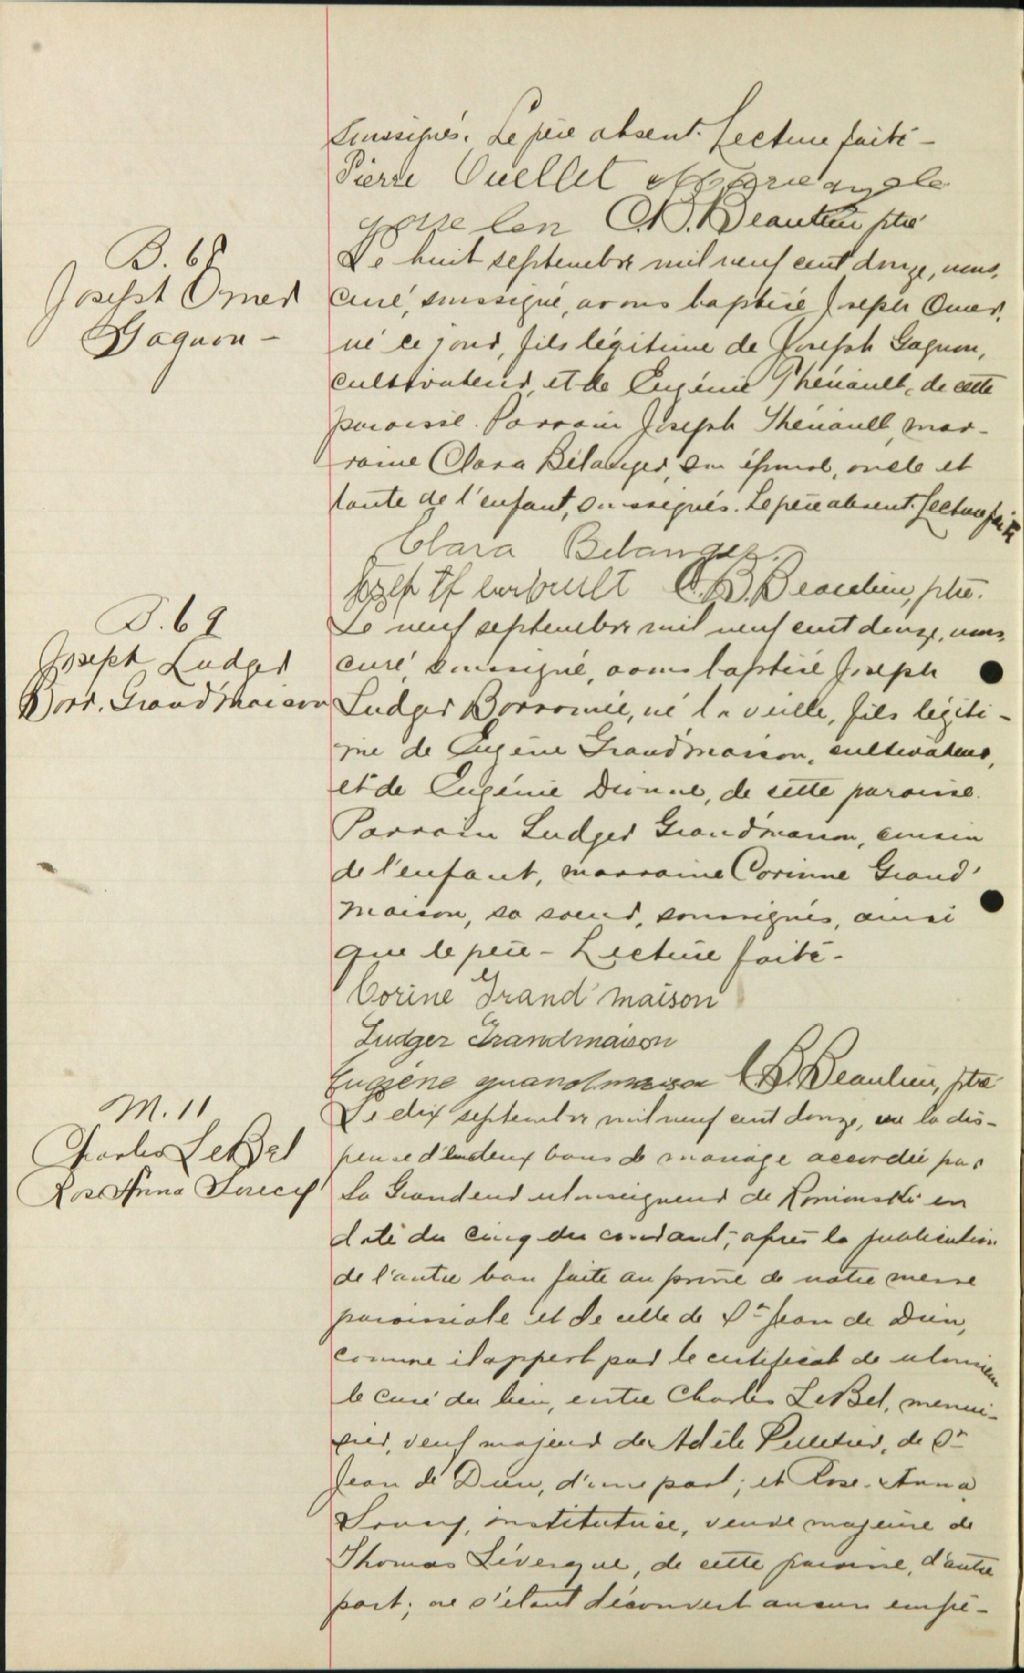 soussignés. Le père absent. Lecture faite –
Pierre Ouellet
C.B. Beaulieu ptre
B. 68
Joseph Omer
Gagnon –
Le huit septembre mil neuf cent douze, nous,
curé, soussigné, avons baptisé Joseph Omer,
né ce jour, fils légitime de Joseph Gagnon,
cultivateur, et de Eugénie Thériault, de cette
paroisse. Parrain Joseph Thériault, mar-
raine Clara Bélanger, son épouse, oncle et
tante de l'enfant, soussignés. Le père absent. Lecture faite
Clara Belanger
C.B. Beaulieu, ptre.
B. 69
Joseph Ludger
Borr. Grand'maison
Le neuf septembre mil neuf cent douze, nous,
curé, soussigné, avons baptisé Joseph
Ludger Borromée, né la veille, fils légiti-
me de Eugène Grand'maison, cultivateur,
et de Eugénie Dionne, de cette paroisse.
Parrain Ludger Grand'maison, cousin
de l'enfant, marraine Corinne Grand'
maison, sa soeur, soussignés, ainsi
que le père – Lecture faite –
Corine Grand'maison
Ludger Grandmaison
Eugène C.B. Beaulieu, ptre
M. 11
Charles LeBel
Rose Anna Soucy
Le dix septembre mil neuf cent douze, vu la dis-
pense de deux bans de mariage accordée par
Sa Grandeur Monseigneur de Rimouski en
date du cinq du courant, après la publication
de l'autre ban faite au prône de notre messe
paroissiale et de celle de St Jean de Dieu,
comme il appert par le certificat de Monsieur
le curé du lieu, entre Charles LeBel, menui-
sier, veuf majeur de Adèle Pelletier, de St
Jean de Dieu, d'une part; et Rose-Anna
Soucy, institutrice, veuve majeure de
Thomas Lévesque, de cette paroisse, d'autre
part; ne s'étant découvert aucun empê-